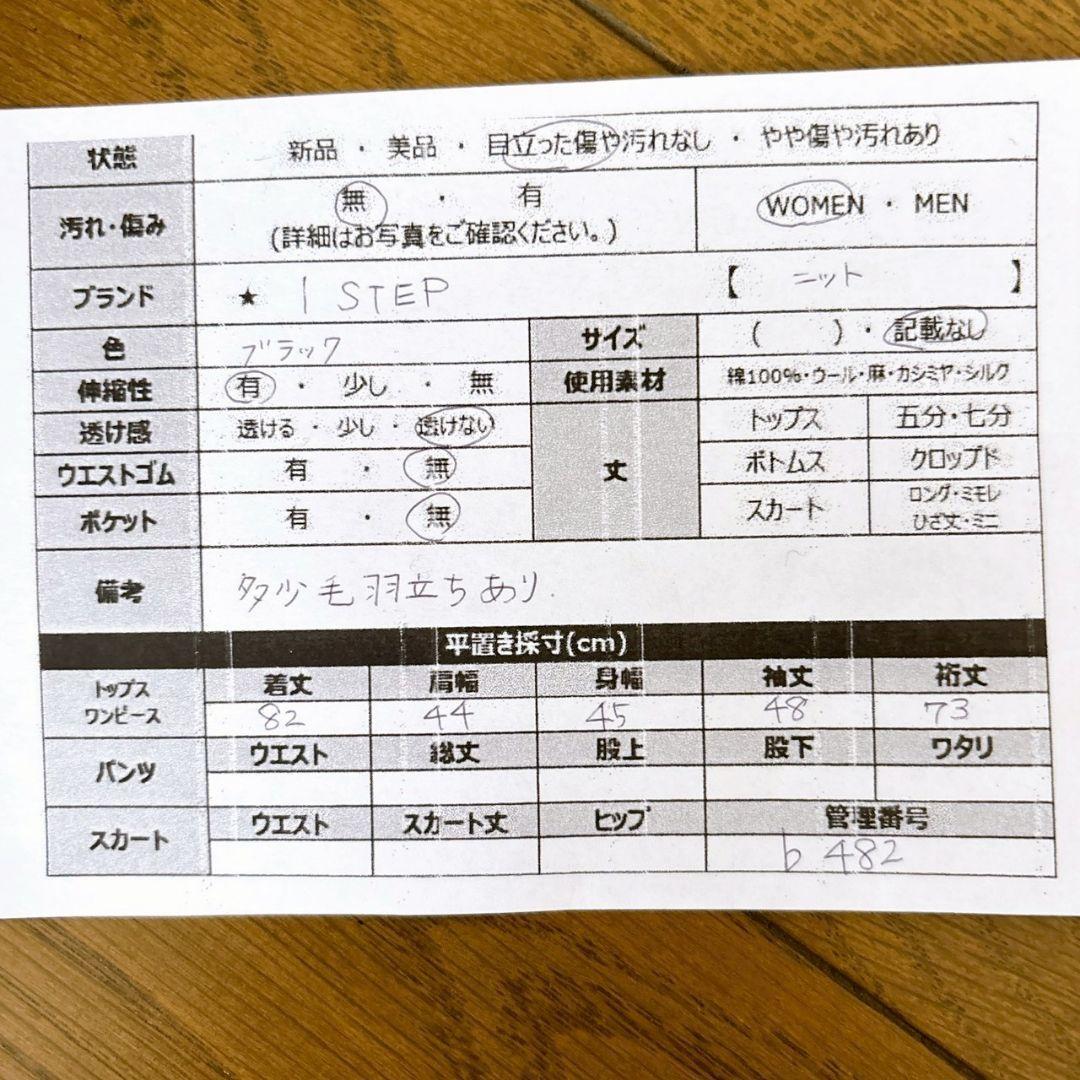 状態 新品 ・ 美品 ・ 目立った傷や汚れなし ・ やや傷や汚れあり
汚れ・傷み 無 ・ 有 WOMEN ・ MEN
(詳細はお写真をご確認ください。)
ブランド ★ 1 STEP 【 ニット 】
色 ブラック サイズ ( ) ・ 記載なし
伸縮性 有 ・ 少し ・ 無 使用素材 綿100%・ウール・麻・カシミヤ・シルク
透け感 透ける ・ 少し ・ 透けない 丈 トップス 五分・七分
ウエストゴム 有 ・ 無 ボトムス クロップド
ポケット 有 ・ 無 スカート ロング・ミモレ
ひざ丈・ミニ
備考 多少毛羽立ちあり.
平置き採寸(cm)
トップス ワンピース 着丈 肩幅 身幅 袖丈 裄丈
82 44 45 48 73
パンツ ウエスト 総丈 股上 股下 ワタリ
スカート ウエスト スカート丈 ヒップ 管理番号
b 482